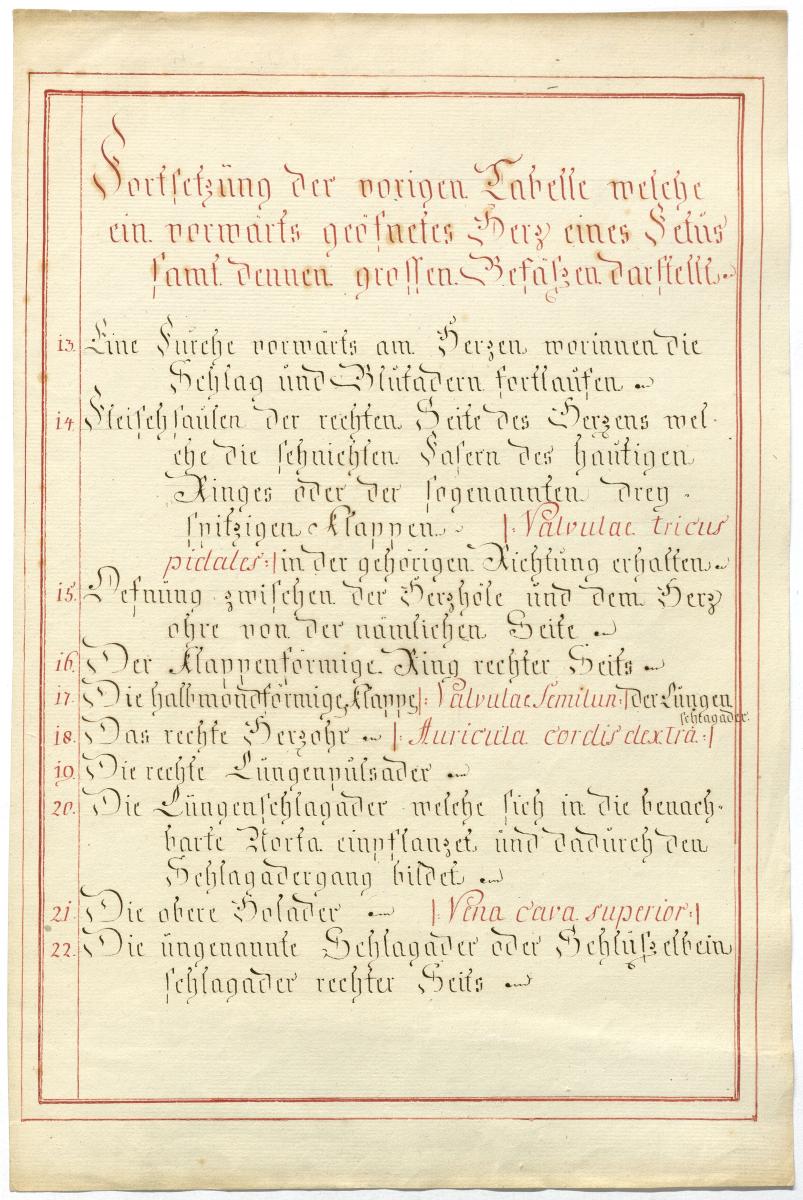 Fortsetzüng der vorigen Tabelle welche
ein vorwärts geöfnetes Herz eines Fetüs
samt dennen grossen Gefäszen darstellt.
13. Eine Fürche vorwärts am Herzen worinnen die
Schlag ünd Blutadern fortlaufen
14. Fleischsaülen der rechten Seite des Herzens wel-
che die sehnichten Fasern des haütigen
Ringes oder der sogenannten drey-
spitzigen Klappen |: Valvulae tricus
pidales :| in der gehörigen Richtüng erhalten
15. Oefnüng zwischen der Herzhöle ünd dem Herz
ohre von der nämlichen Seite
16. Der klappenförmige Ring rechter Seits
17. Die halbmondförmige Klappe |: Valvulae Semilun :| der Lüngen
schlagader.
18. Das rechte Herzohr |: Auricula cordis dextra :|
19. Die rechte Lüngenpülsader
20. Die Lüngenschlagader welche sich in die benach-
barte Aorta einpflanzet ünd dadürch den
Schlagadergang bildet
21. Die obere Holader |: Vena cava superior :|
22. Die üngenannte Schlagader oder Schlüszelbein
schlagader rechter Seits